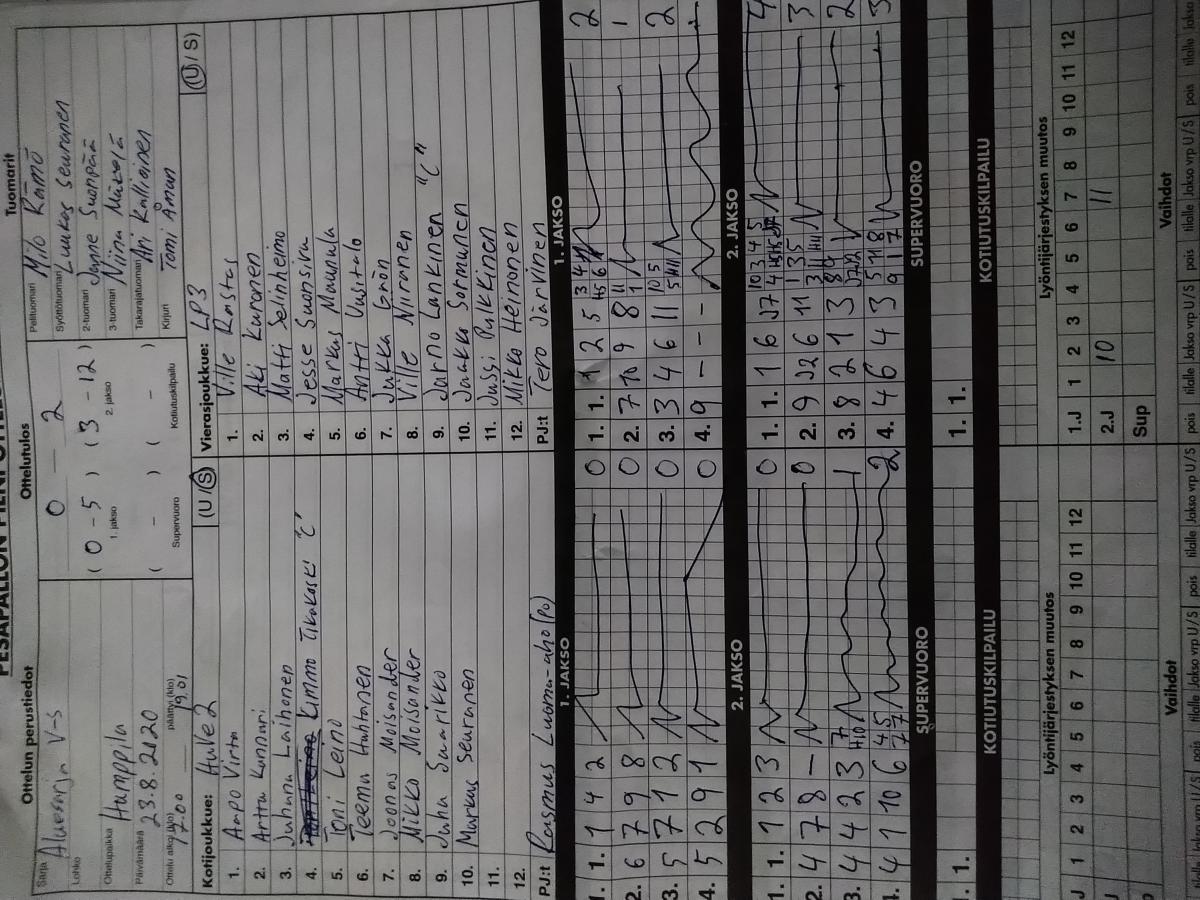 PESÄPALLON PIENI OTTELU
Ottelun perustiedot
Sarja Aluesarja V-S
Lohko
Ottelupaikka Humppila
Päivämäärä 23.8.2020
Ottelu alkoi (klo) 17.00 päättyi (klo) 19.01
Ottelutulos
0 — 2
( 0 - 5 ) ( 3 - 12 )
1. jakso 2. jakso
( - ) ( - )
Supervuoro Kotiutuskilpailu
Tuomarit
Pelituomari Milo Rämö
Syöttötuomari Luukas Seuranen
2-tuomari Janne Suonpää
3-tuomari Niina
Takarajatuomari Ari Kallioinen
Kirjuri Tomi Åman
Kotijoukkue: HuLe 2 (U/S)
1. Aapo Virta
2. Arttu Kunnari
3. Juhana Laihonen
4. Kimmo Tikakoski "C"
5. Toni Leino
6. Teemu Huhtanen
7. Joonas Moisander
8. Mikko Moisander
9. Juha Suarikko
10. Markus Seuranen
11.
12.
PJ:t Rasmus Luoma-aho (Po)
Vierasjoukkue: LP3 (U/S)
1. Ville Rastas
2. Aki Kuronen
3. Matti Selinheimo
4. Jesse Suonsivu
5. Markus Maunula
6. Antti Uusitalo
7. Jukka Grön
8. Ville Niiranen
9. Jarno Lankinen "C"
10. Jaakko Sormunen
11. Jussi Pulkkinen
12. Mika Heinonen
PJ:t Tero Järvinen
1. JAKSO
1. 1. 1 4 2 0
2. 6 7 9 8 0
3. 5 7 1 2 0
4. 5 2 9 1 0
2. JAKSO
1. 1. 1 2 3 0
2. 4 7 8 - 0
3. 4 4 2 3 1
4. 4 1 10 6 2
SUPERVUORO
1. 1.
KOTIUTUSKILPAILU
Lyöntijärjestyksen muutos
1 2 3 4 5 6 7 8 9 10 11 12
Vaihdot
pois tilalle Jakso vrp U/S
1. JAKSO
1. 1. 1 2 5 2
2. 7 10 9 8 1
3. 3 4 6 11 2
4. 9 - - -
2. JAKSO
1. 1. 1 6 J7 4
2. 9 J2 6 11 3
3. 8 2 1 3 2
4. 4 6 4 3 3
SUPERVUORO
1. 1.
KOTIUTUSKILPAILU
Lyöntijärjestyksen muutos
1.J 1 2 3 4 5 6 7 8 9 10 11 12
2.J 10 11
Sup
Vaihdot
pois tilalle Jakso vrp U/S pois tilalle Jakso vrp U/S